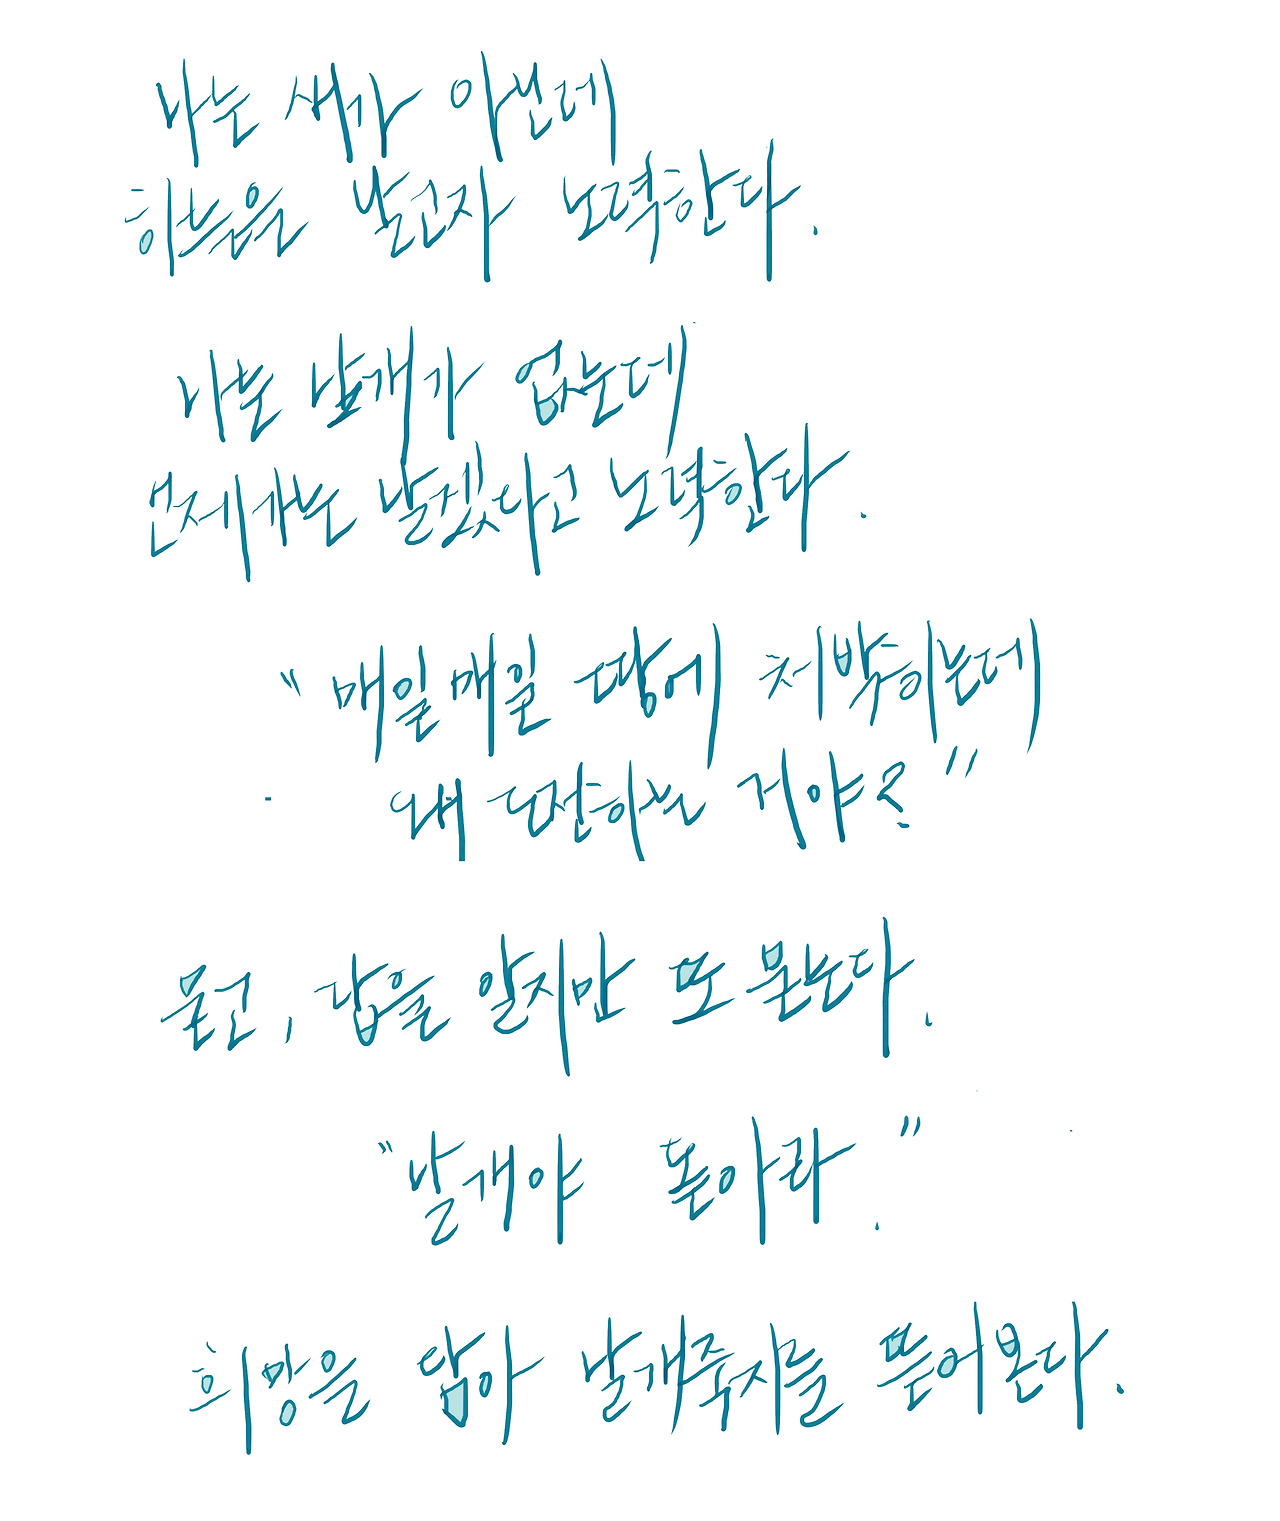 나는 새가 아닌데
하늘을 날고자 노력한다.
나는 날개가 없는데
언제가는 날겠다고 노력한다.
"매일매일 땅에 처박히는데
왜 도전하는 거야?"
묻고, 답을 알지만 또 묻는다.
"날개야 돋아라."
희망을 담아 날개죽지를 뜯어본다.